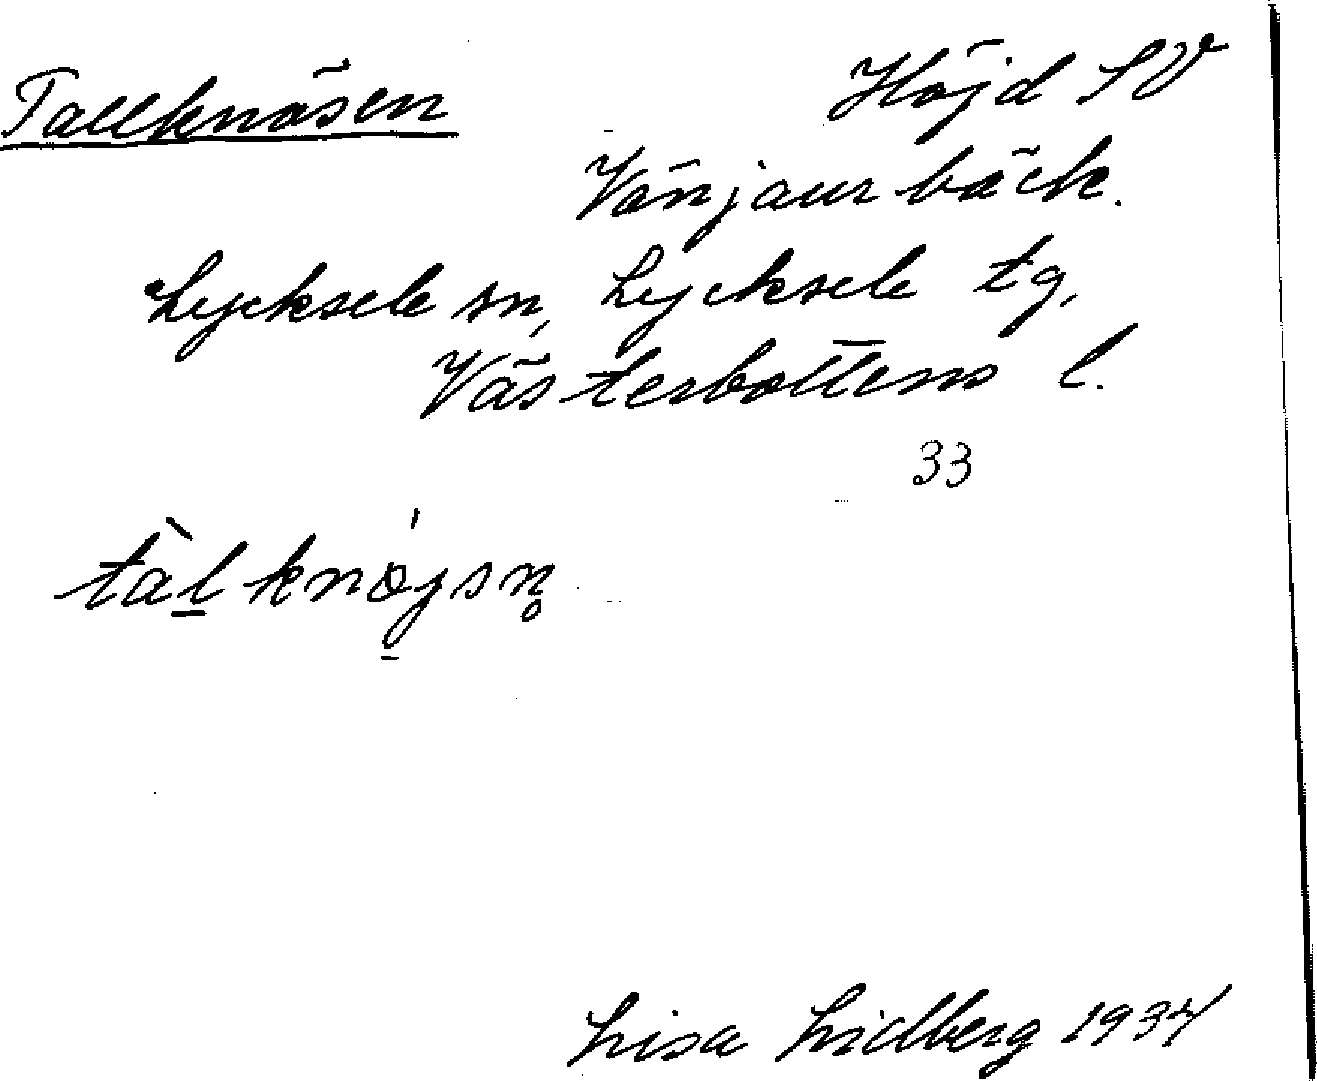 Tallknäsen Höjd SV
Vänjaurbäck.
Lycksele sn, Lycksele tg,
Västerbottens l.
33
Lisa Lidberg 1934